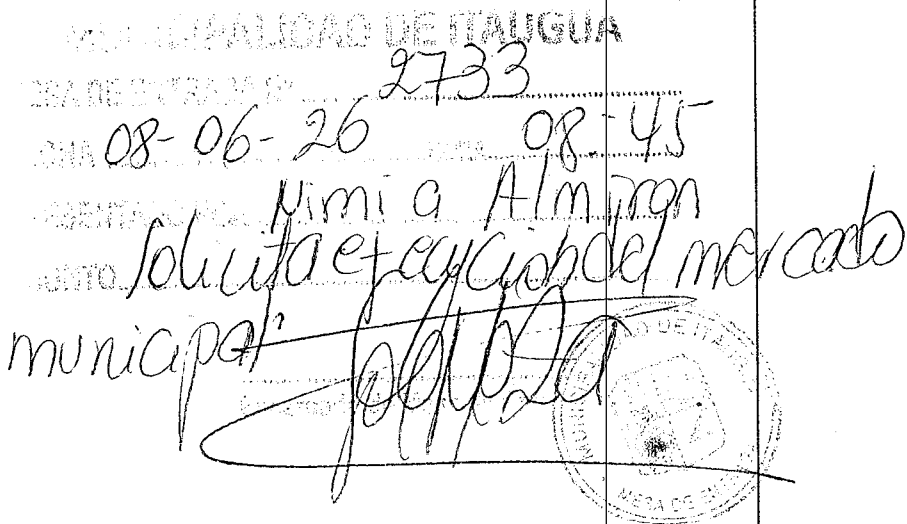 MUNICIPALIDAD DE ITAUGUA
MESA DE ENTRADA Nº 2733
08-06-26 08-45
Nimia Almiron
Solicita ejecución del mercado
municipal
MESA DE